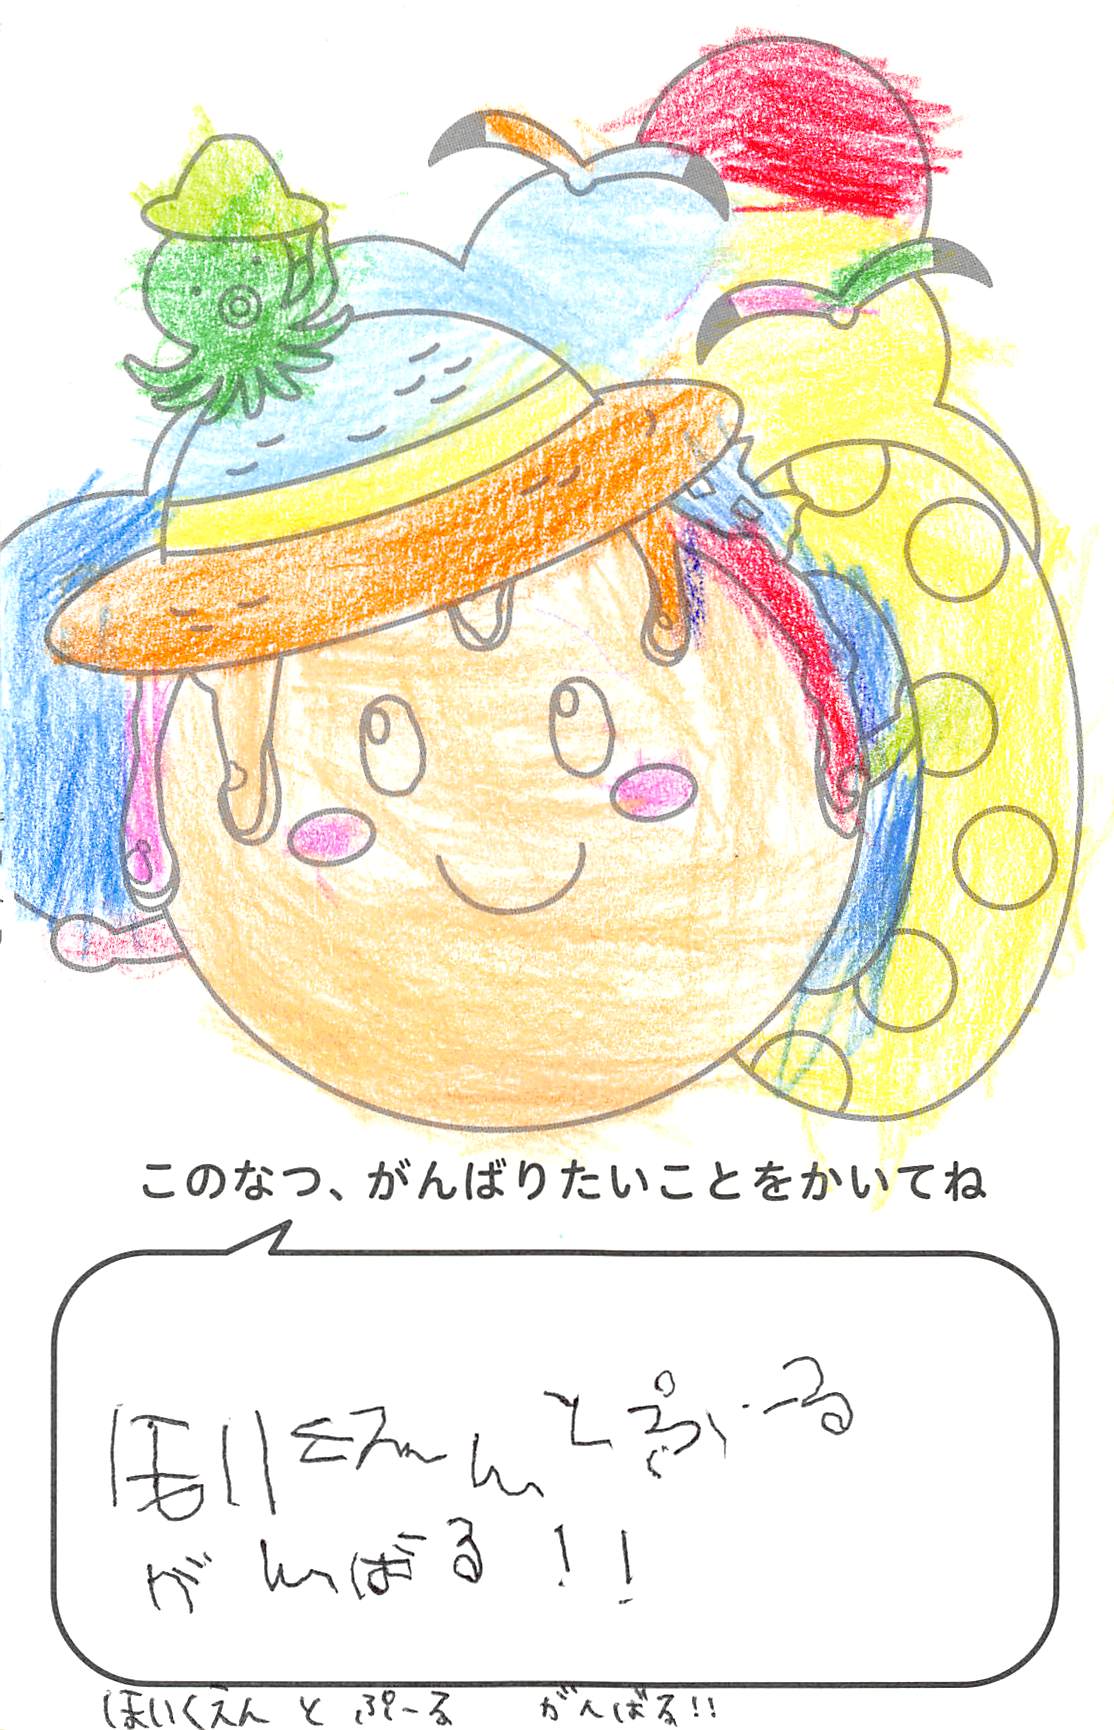 このなつ、がんばりたいことをかいてね
ほいくえんとぷーる
がんばる!!
ほいくえん と ぷーる がんばる!!